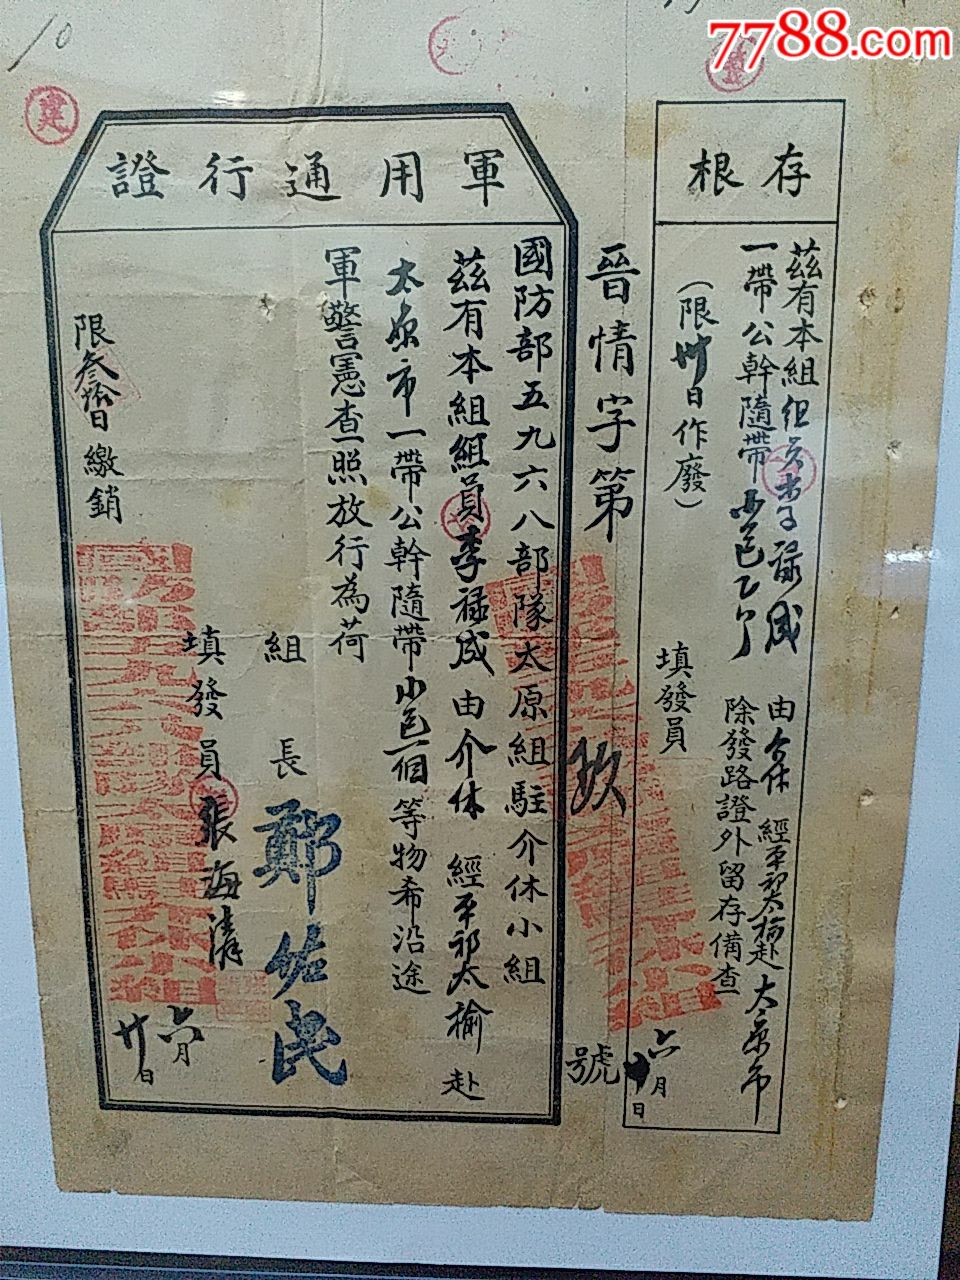 7788.com
10
建
存根
茲有本組組員李禄成 由介休 經平祁太榆赴太原市
一帶公幹隨帶小包乙个 除發路證外留存備查
(限卅日作廢)
填發員
六月廿日
晉情字第玖號
軍用通行證
國防部五九六八部隊太原組駐介休小組
茲有本組組員李禄成由介休 經平祁太榆 赴
太原市一帶公幹隨帶小包一個等物希沿途
軍警憲查照放行為荷
組長 鄭佐民
填發員 張海清
限叁拾日繳銷
六月廿日